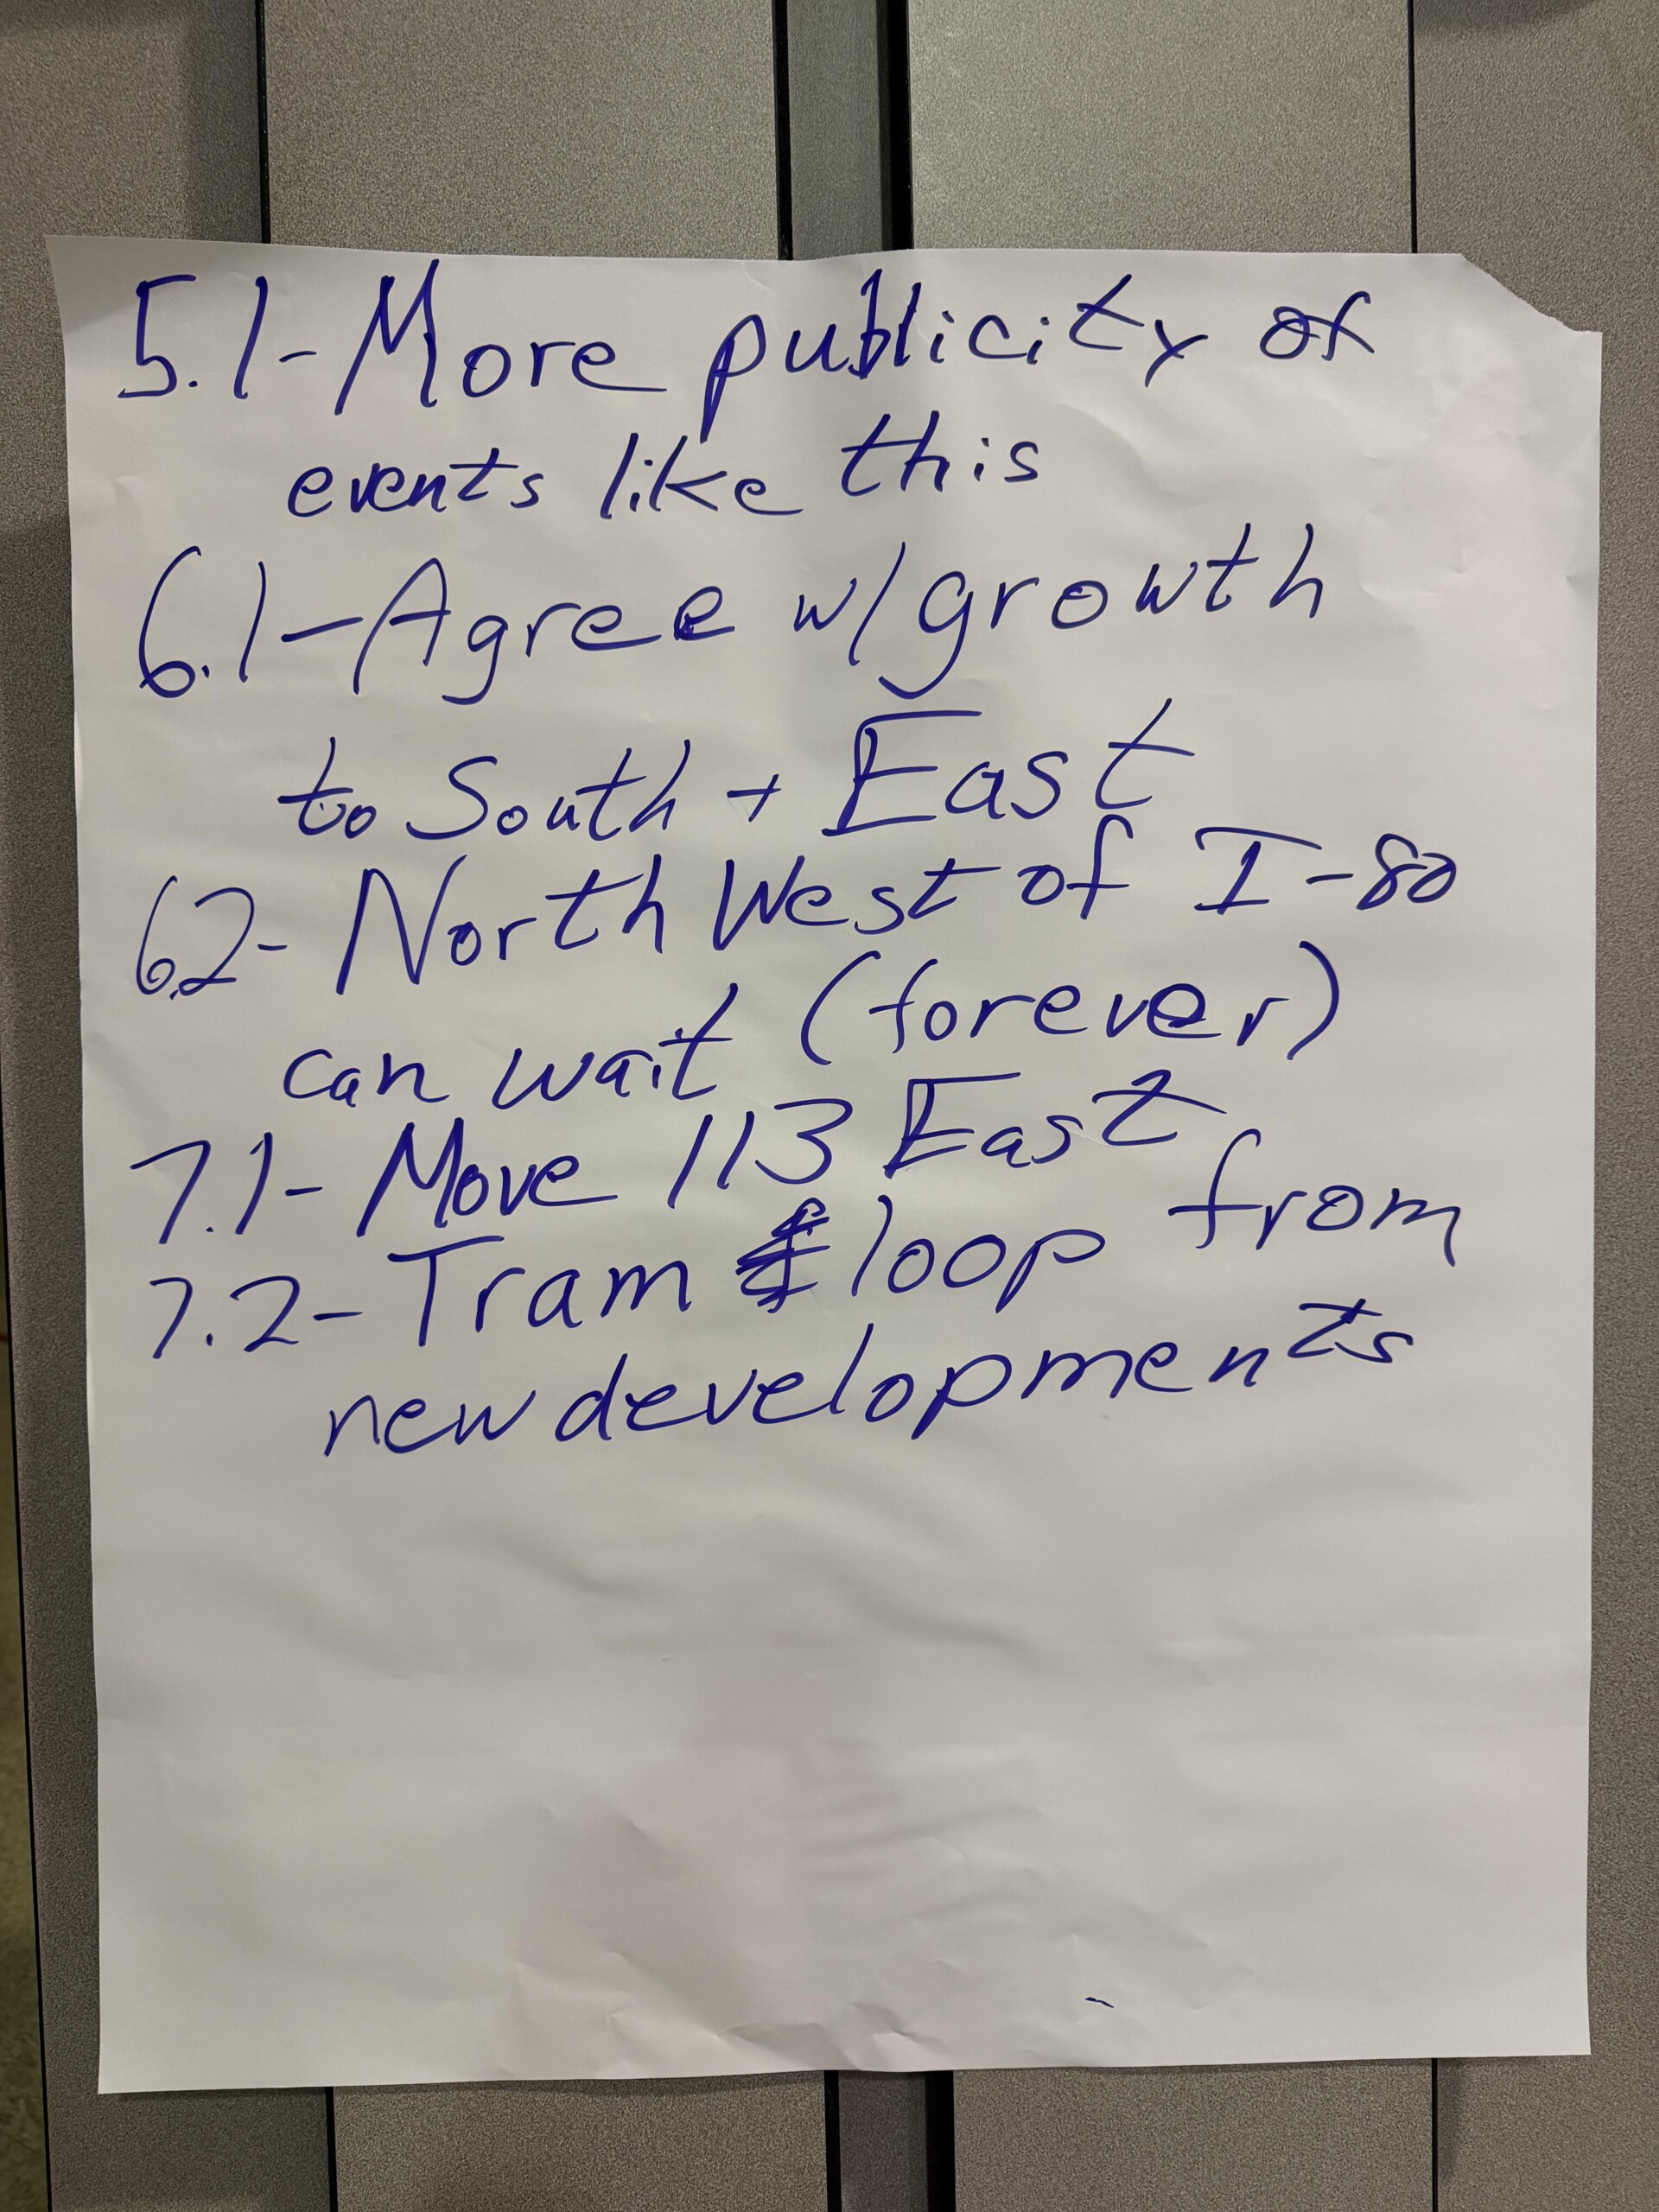 5.1-More publicity of
events like this
6.1-Agree w/growth
to South + East
6.2-North West of I-80
can wait (forever)
7.1-Move 113 East
7.2-Tram loop from
new developments